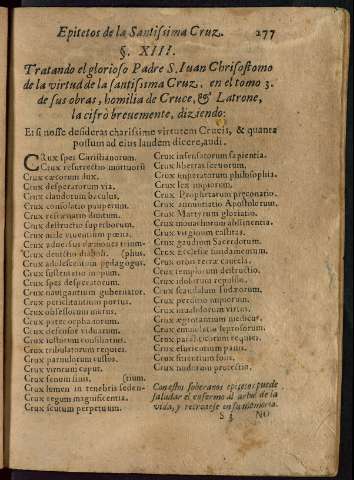 Epitetos de la Santissima Cruz. 277
§. XIII.
Tratando el glorioso Padre S. Iuan Chrisostomo
de la virtud de la santissima Cruz, en el tomo 3.
de sus obras, homilia de Cruce, & Latrone,
la cifrò brevemente, diziendo:
Et si nosse desideras charissime virtutem Crucis, & quanta
possum ad eius laudem dicere, audi.
CRux spes Christianorum.
Crux resurrectio mortuorũ
Crux cæcorum dux.
Crux desperatorum via.
Crux claudorum baculus.
Crux consolatio pauperum.
Crux refrænatio divitum.
Crux destructio superborum.
Crux male viventium pœna.
Crux adversus dæmones trium-
Crux devictio diaboli. (phus.
Crux adolescentum pędagogus.
Crux sustentatio inopum.
Crux spes desperatorum.
Crux navigantium gubernator.
Crux periclitantium portus.
Crux obsessorum murus.
Crux pater orphanorum.
Crux defensor viduarum.
Crux iustorum consiliarius.
Crux tribulatorum requies.
Crux parvulorum custos.
Crux virorum caput.
Crux senum finis. (trium.
Crux lumen in tenebris seden-
Crux regum magnificentia.
Crux scutum perpetuum.
Crux insensatorum sapientia.
Crux libertas servorum.
Crux imperatorum philosophia.
Crux lex impiorum.
Crux Prophetarum præconatio.
Crux annuntiatio Apostolorum.
Crux Martyrum gloriatio.
Crux monachorum abstinentia.
Crux virginum castitas.
Crux gaudium Sacerdotum.
Crux Ecclesiæ fundamentum.
Crux orbis terræ cautela.
Crux templorum destructio.
Crux idolorum repulsio.
Crux scandalum Iudæorum.
Crux perditio impiorum.
Crux invalidorum virtus.
Crux ægrotantium medicus.
Crux emundatio leprosorum.
Crux paralyticorum requies.
Crux esurientium panis.
Crux sitientium fons.
Crux nudorum protectio.
Con estos soberanos epitetos puede
saludar el enfermo al arbol de la
vida, y retratele en su memoria.
S 3 NO